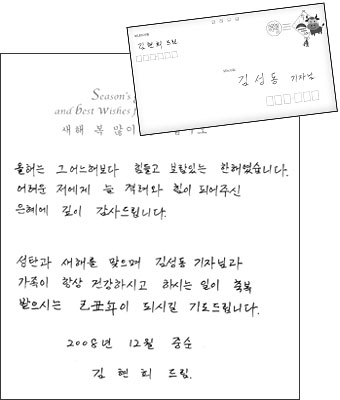 김현희 드림
김성동 기자님
Season's
and best Wishes f
새해 복 많이
올해는 그 어느해보다 힘들고 보람있는 한해였습니다.
어려운 저에게 늘 격려와 힘이 되어주신
은혜에 깊이 감사드립니다.
성탄과 새해를 맞으며 김성동 기자님과
가족이 항상 건강하시고 하시는 일이 축복
받으시는 己丑年이 되시길 기도드립니다.
2008년 12월 중순
김 현 희 드림.